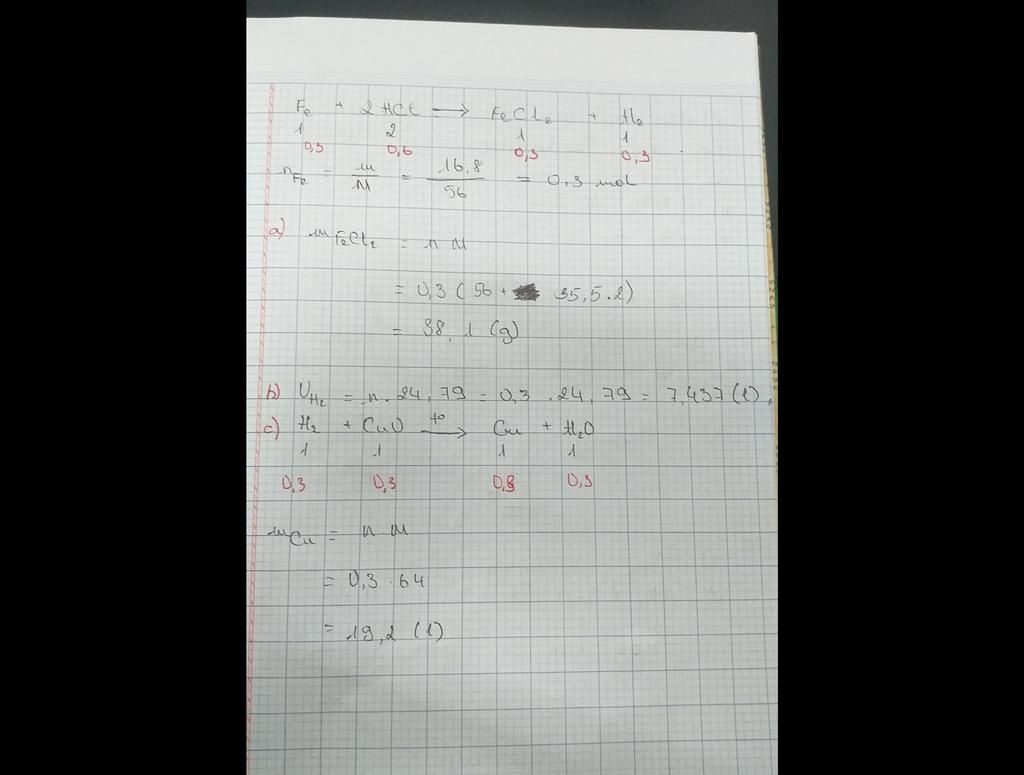 Fe + 2HCl → FeCl₂ + H₂
1 2 1 1
0,3 0,6 0,3 0,3
nFe = m/M = 16,8/56 = 0,3 mol
a) mFeCl₂ = n.M
= 0,3 (56 + 35,5.2)
= 38,1 (g)
b) VH₂ = n.24,79 = 0,3.24,79 = 7,437 (l).
c) H₂ + CuO →(t°) Cu + H₂O
1 1 1 1
0,3 0,3 0,3 0,3
mCu = n.M
= 0,3.64
= 19,2 (l)